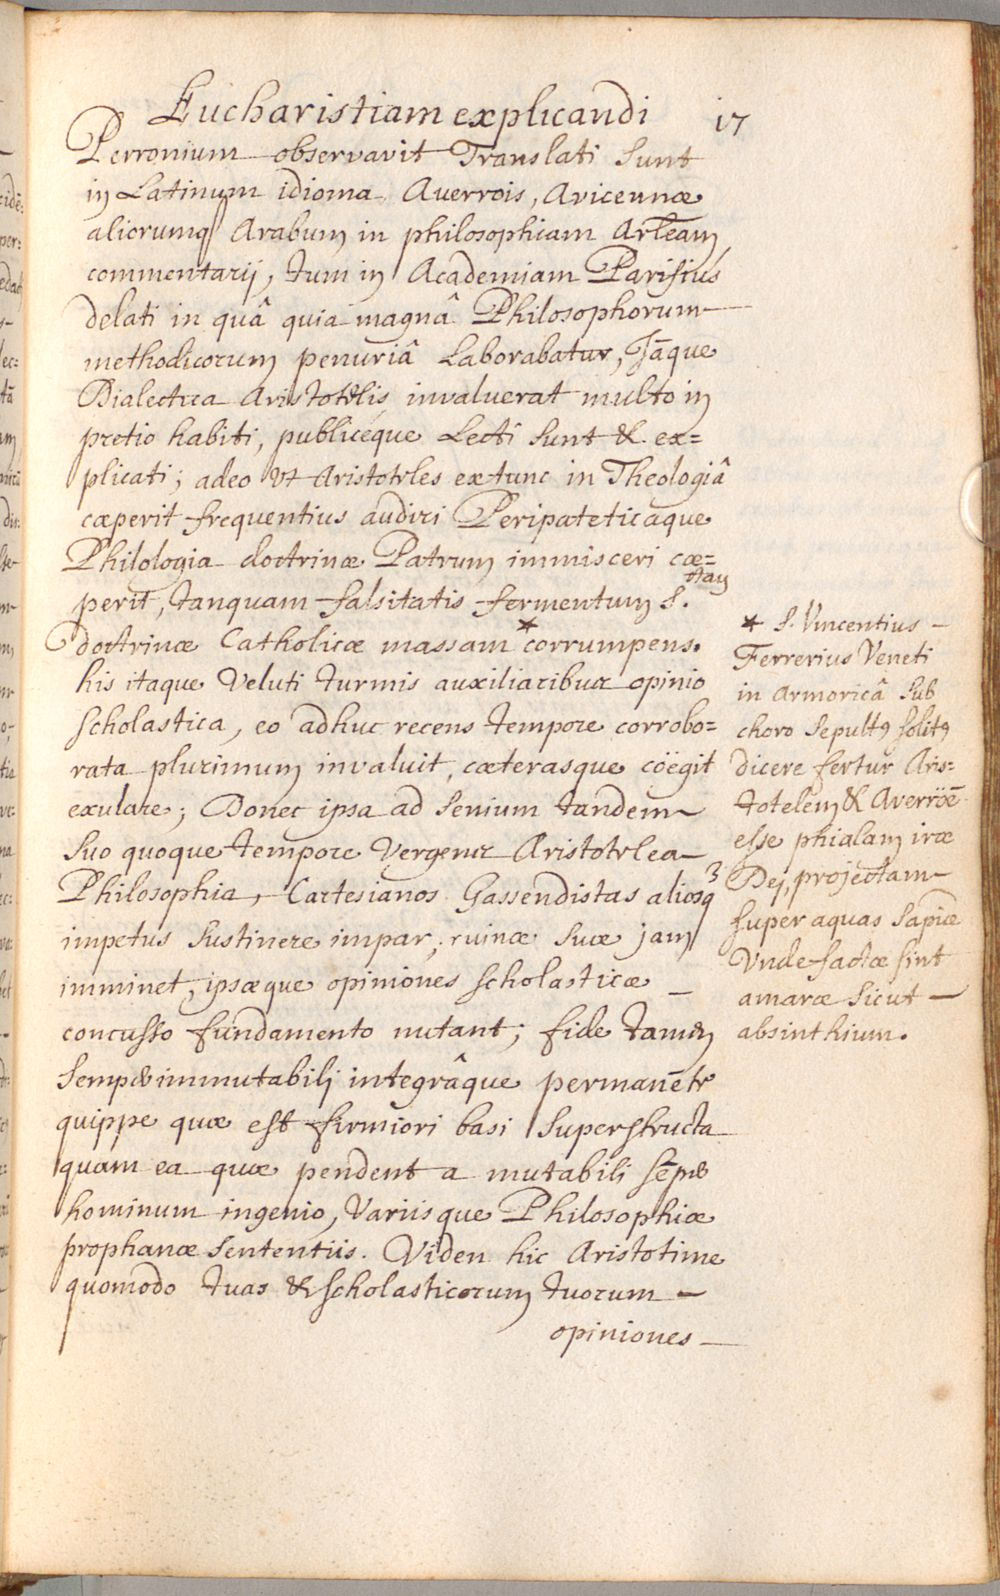 Eucharistiam explicandi 17
Perronium observavit Translati Sunt
in Latinum idioma Averrois, Avicennæ
aliorumq Arabum in philosophiam Arleam
commentarij, tum in Academiam Parisius
delati in quâ quia magnâ Philosophorum
methodicorum penuriâ Laborabatur, Jāque
Dialectica Aristotelis invaluerat multo in
pretio habiti, publiceque Lecti Sunt & ex=
plicati; adeo ut Aristoteles extunc in Theologiâ
cæperit frequentius audiri Peripateticaque
Philologia doctrinæ Patrum immisceri cæ=
perit, tanquam falsitatis fermentum S. tam
doctrinæ Catholicæ massam * corrumpens.
his itaque Veluti turmis auxiliaribus opinio
scholastica, eo adhuc recens tempore corrobo=
rata plurimum invaluit, cæterasque cöegit
exulare; Donec ipsa ad Senium tandem
Suo quoque tempore Vergens Aristotelea
Philosophia, Cartesianos Gassendistas aliosq3
impetus Sustinere impar, ruinæ Suæ jam
imminet, ipsæque opiniones scholasticæ
concusso fundamento nutant; fide tamen
Semper immutabili integrâque permanēte
quippe quæ est firmiori basi Superstructa
quam ea quæ pendent a mutabili sēper
hominum ingenio, Variisque Philosophiæ
prophanæ Sententiis. Viden hic Aristotime
quomodo tuas & scholasticorum tuorum
opiniones
* S. Vincentius
Ferrerius Veneti
in Armoricâ Sub
choro Sepult9 solit9
dicere fertur Aris=
totelem & Averröē
esse phialam iræ
Dej, projectam
super aquas Sapiæ
Vnde factæ sint
amaræ Sicut
absinthium.